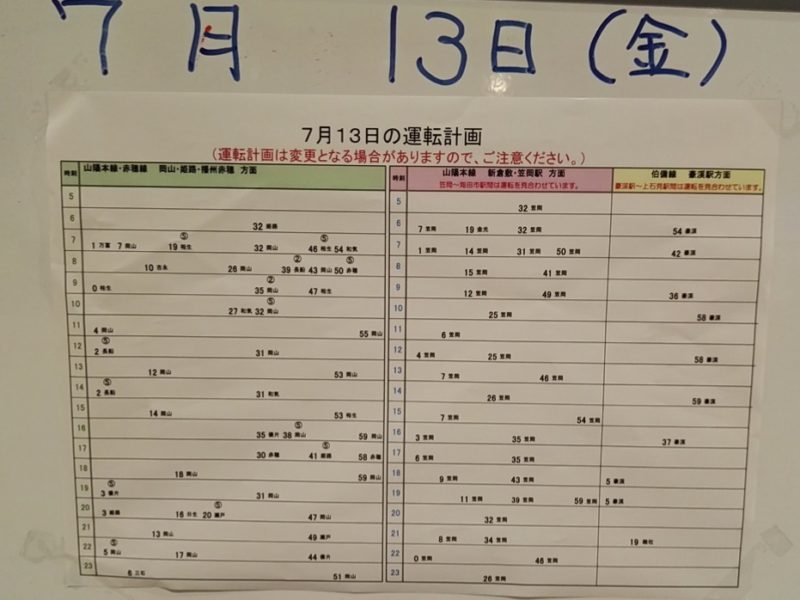 7月 13日(金)
7月13日の運転計画
(運転計画は変更となる場合がありますので、ご注意ください。)
時刻 山陽本線・赤穂線 岡山・姫路・播州赤穂 方面
5
6 32 姫路
⑤ ⑤
7 1 万富 7 岡山 19 相生 32 岡山 46 相生 54 和気
② ⑤
8 10 吉永 26 岡山 39 長船 43 岡山 50 赤穂
②
9 0 相生 35 岡山 47 相生
⑤
10 27 和気 32 岡山
11 4 岡山 55 岡山
⑤
12 2 長船 31 岡山
13 12 岡山 53 岡山
⑤
14 2 長船 31 和気
15 14 岡山 53 相生
⑤
16 35 備片 38 岡山 59 岡山
⑤
17 30 赤穂 41 姫路 58 赤穂
18 18 岡山 59 岡山
⑤
19 3 備片 31 岡山
⑤
20 3 姫路 16 日生 20 瀬戸 47 岡山
21 13 岡山 49 瀬戸
⑤
22 5 岡山 17 岡山 44 備片
23 6 三石 51 岡山
時刻 山陽本線 新倉敷・笠岡駅 方面
笠岡～福田市駅間は運転を見合わせています。
5 32 笠岡
6 7 笠岡 19 金光 32 笠岡
7 1 笠岡 14 笠岡 31 笠岡 50 笠岡
8 15 笠岡 41 笠岡
9 12 笠岡 49 笠岡
10 25 笠岡
11 6 笠岡
12 4 笠岡 25 笠岡
13 7 笠岡 46 笠岡
14 26 笠岡
15 7 笠岡 54 笠岡
16 3 笠岡 35 笠岡
17 6 笠岡 35 笠岡
18 9 笠岡 43 笠岡
19 11 笠岡 39 笠岡 59 笠岡
20 32 笠岡
21 8 笠岡 34 笠岡
22 0 笠岡 46 笠岡
23 26 笠岡
伯備線 豪渓駅方面
豪渓駅～上石見駅間は運転を見合わせています。
54 豪渓
42 豪渓
36 豪渓
58 豪渓
58 豪渓
59 豪渓
37 豪渓
5 豪渓
5 豪渓
19 総社